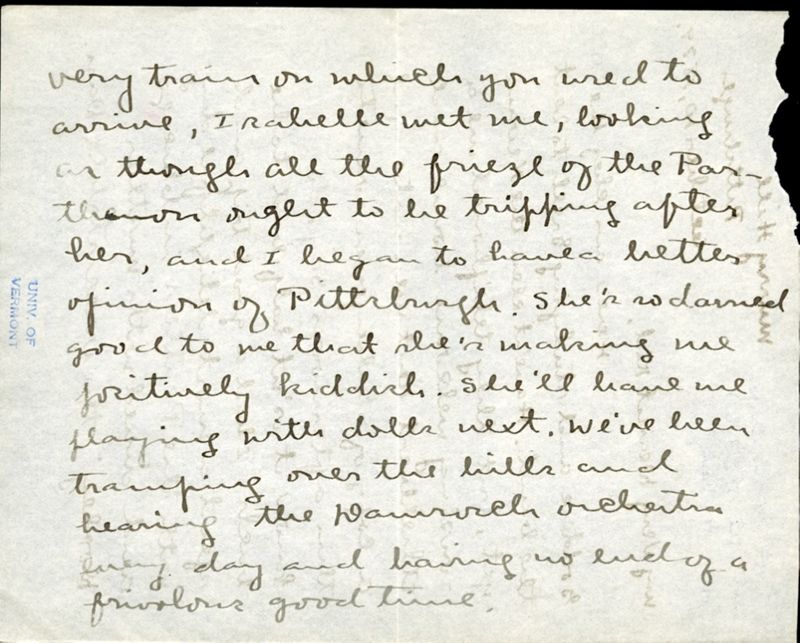 very train on which you used to
arrive, Isabelle met me, looking
as though all the frieze of the Par-
thenon ought to be tripping after
her, and I began to have a better
opinion of Pittsburgh. She's so darned
good to me that she's making me
positively kiddish. She'll have me
playing with dolls next. We've been
tramping over the hills and
hearing the Damrosch orchestra
every day and having no end of a
frivolous good time.
UNIV. OF
VERMONT